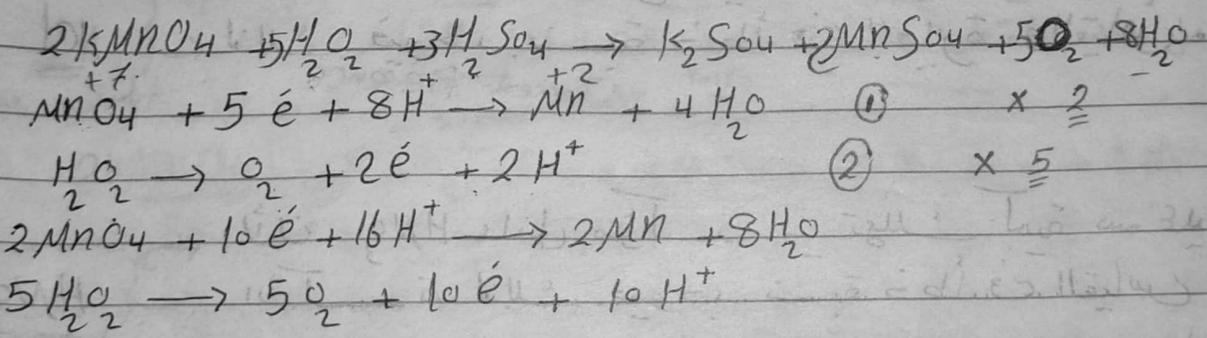 2KMnO4 + 5H2O2 + 3H2SO4 → K2SO4 + 2MnSO4 + 5O2 + 8H2O
+7 +2
MnO4 + 5é + 8H+ → Mn + 4H2O ① × 2
H2O2 → O2 + 2é + 2H+ ② × 5
2MnO4 + 10é + 16H+ → 2Mn + 8H2O
5H2O2 → 5O2 + 10é + 10H+